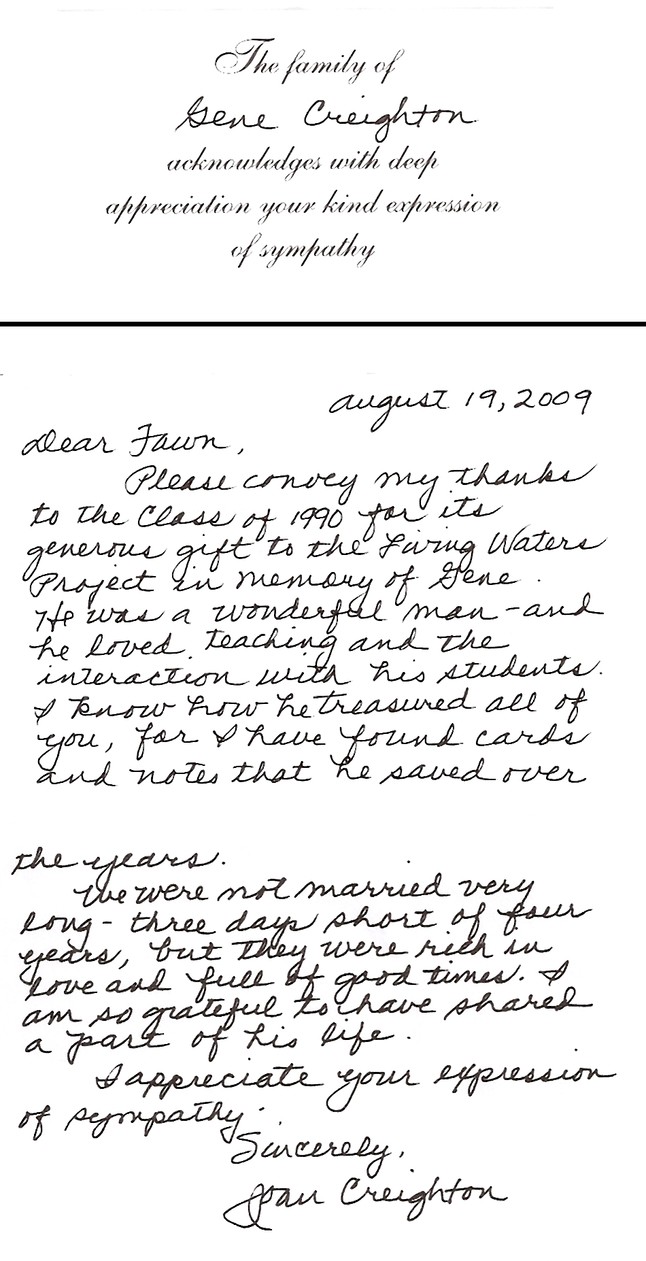 The family of
Gene Creighton
acknowledges with deep
appreciation your kind expression
of sympathy
August 19, 2009
Dear Fawn,
Please convey my thanks
to the Class of 1990 for its
generous gift to the Living Waters
Project in memory of Gene.
He was a wonderful man - and
he loved teaching and the
interaction with his students.
I know how he treasured all of
you, for I have found cards
and notes that he saved over
the years.
We were not married very
long - three days short of four
years, but they were rich in
love and full of good times. I
am so grateful to have shared
a part of his life.
I appreciate your expression
of sympathy.
Sincerely,
Joan Creighton